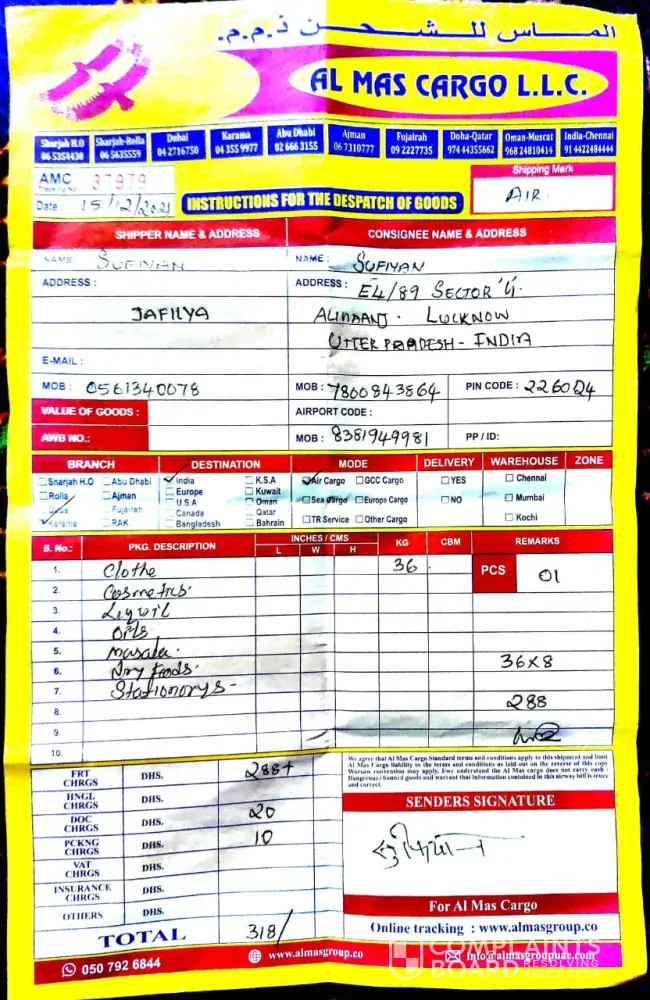 الماس للشحن ذ.م.م.
AL MAS CARGO L.L.C.
Sharjah H.O Sharjah-Rolla Dubai Karama Abu Dhabi Ajman Fujairah Doha-Qatar Oman-Muscat India-Chennai
06 5354430 06 5635559 04 2716750 04 355 9977 02 666 3155 06 7310777 09 2227735 974 44355662 968 24810414 91 4422484444
AMC 37979 Shipping Mark
Tracking No
Date : 15/12/2021 INSTRUCTIONS FOR THE DESPATCH OF GOODS AIR.
SHIPPER NAME & ADDRESS CONSIGNEE NAME & ADDRESS
NAME SUFIYAN NAME : SUFIYAN
ADDRESS : ADDRESS : E4/89 SECTOR
JAFILYA LUCKNOW
UTTER PRADESH - INDIA
E-MAIL :
MOB : 0561340078 MOB : 7800843864 PIN CODE : 226024
VALUE OF GOODS : AIRPORT CODE :
AWB NO.: MOB : 8381949981 PP / ID:
BRANCH DESTINATION MODE DELIVERY WAREHOUSE ZONE
Sharjah H.O Abu Dhabi India K.S.A Air Cargo GCC Cargo YES Chennai
Rolla Ajman Europe Kuwait Sea Cargo Europe Cargo NO Mumbai
Fujairah U.S.A Oman TR Service Other Cargo Kochi
Karama RAK Canada Qatar
Bangladesh Bahrain
S. No.: PKG. DESCRIPTION INCHES / CMS KG CBM REMARKS
L W H
1. Clothe 36 PCS 01
2. Cosmetics.
3.
4. Oils
5. Masala.
6. Dry foods. 36x8
7. Stationorys -
8. 288
9.
10.
FRT CHRGS DHS. 288+
HNGL CHRGS DHS.
DOC CHRGS DHS. 20
PCKNG CHRGS DHS. 10
VAT CHRGS DHS.
INSURANCE CHRGS DHS.
OTHERS DHS.
TOTAL 318/
We agree that Al Mas Cargo Standard terms and conditions apply to this shipment and limit
Al Mas Cargo liability to the terms and conditions as laid out on the reverse of this copy
Warsaw convention may apply.
and correct.
SENDERS SIGNATURE
For Al Mas Cargo
Online tracking : www.almasgroup.co
050 792 6844 www.almasgroup.co Info@almasgroupuae.com
COMPLAINTS
BOARD RESOLVING